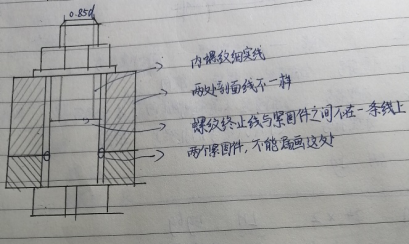 0.85d
内螺纹细实线
两处剖面线不一样
螺纹终止线与紧固件之间不在一条线上
两个紧固件，不能漏画这处